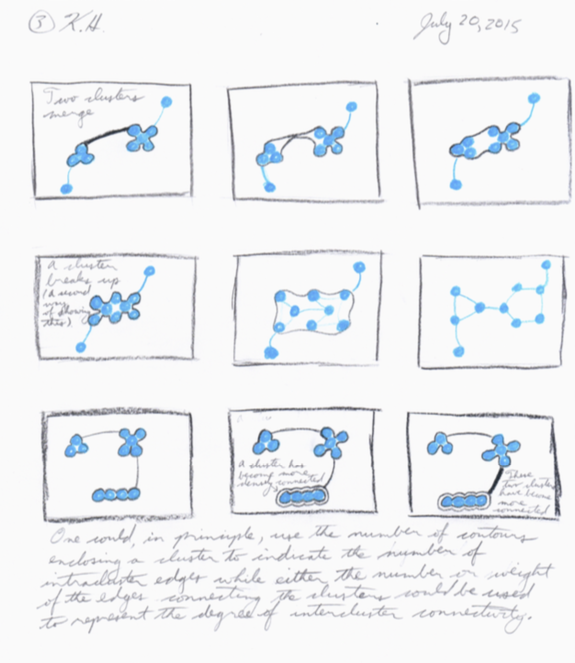 ③ K.H.
July 20, 2015
Two clusters
merge
A cluster
breaks up
(a second
way
of showing
this).
A cluster has
become more
densely connected
These
two clusters
have become
more
connected
One could, in principle, use the number of contours
enclosing a cluster to indicate the number of
intracluster edges while either the number or weight
of the edges connecting the clusters could be used
to represent the degree of intercluster connectivity.